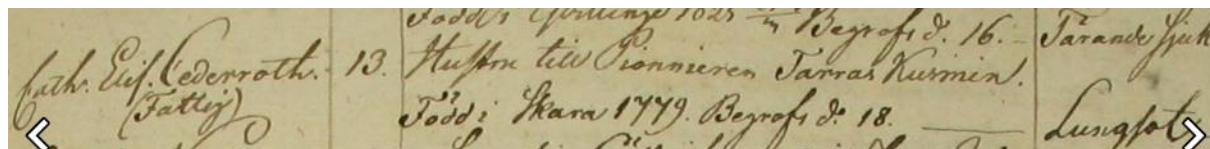 Född i Gvillinge 1825 Begrofs d. 16. Tärande Sjuk
Cath. Elis. Cederroth. 13. Hustru till Pionnieren Tarras Kusmin.
(Fattig) Född i Skara 1779. Begrofs d. 18. Lungsot